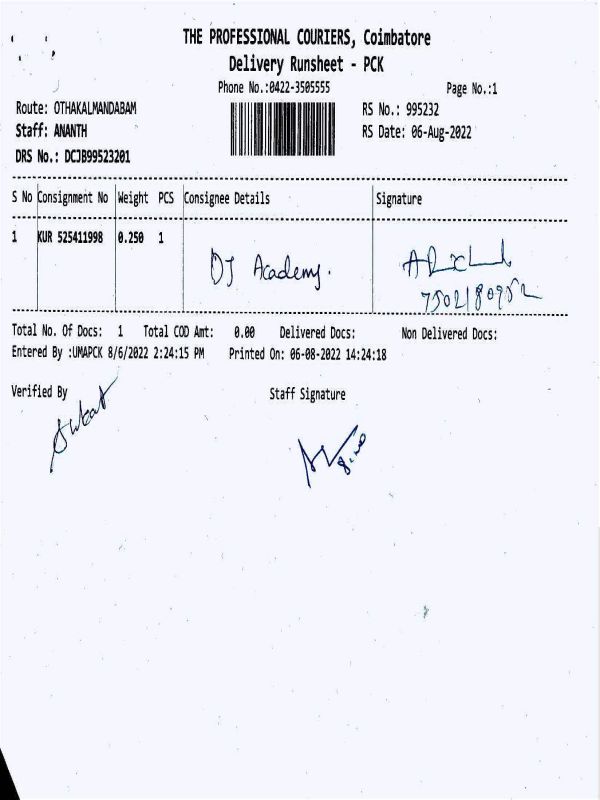 THE PROFESSIONAL COURIERS, Coimbatore
Delivery Runsheet - PCK
Phone No.:0422-3505555 Page No.:1
Route: OTHAKALMANDABAM RS No.: 995232
Staff: ANANTH RS Date: 06-Aug-2022
DRS No.: DCJB99523201
S No Consignment No Weight PCS Consignee Details Signature
1 KUR 525411998 0.250 1
DJ Academy.
Total No. Of Docs: 1 Total COD Amt: 0.00 Delivered Docs: Non Delivered Docs:
Entered By :UMAPCK 8/6/2022 2:24:15 PM Printed On: 06-08-2022 14:24:18
Verified By Staff Signature